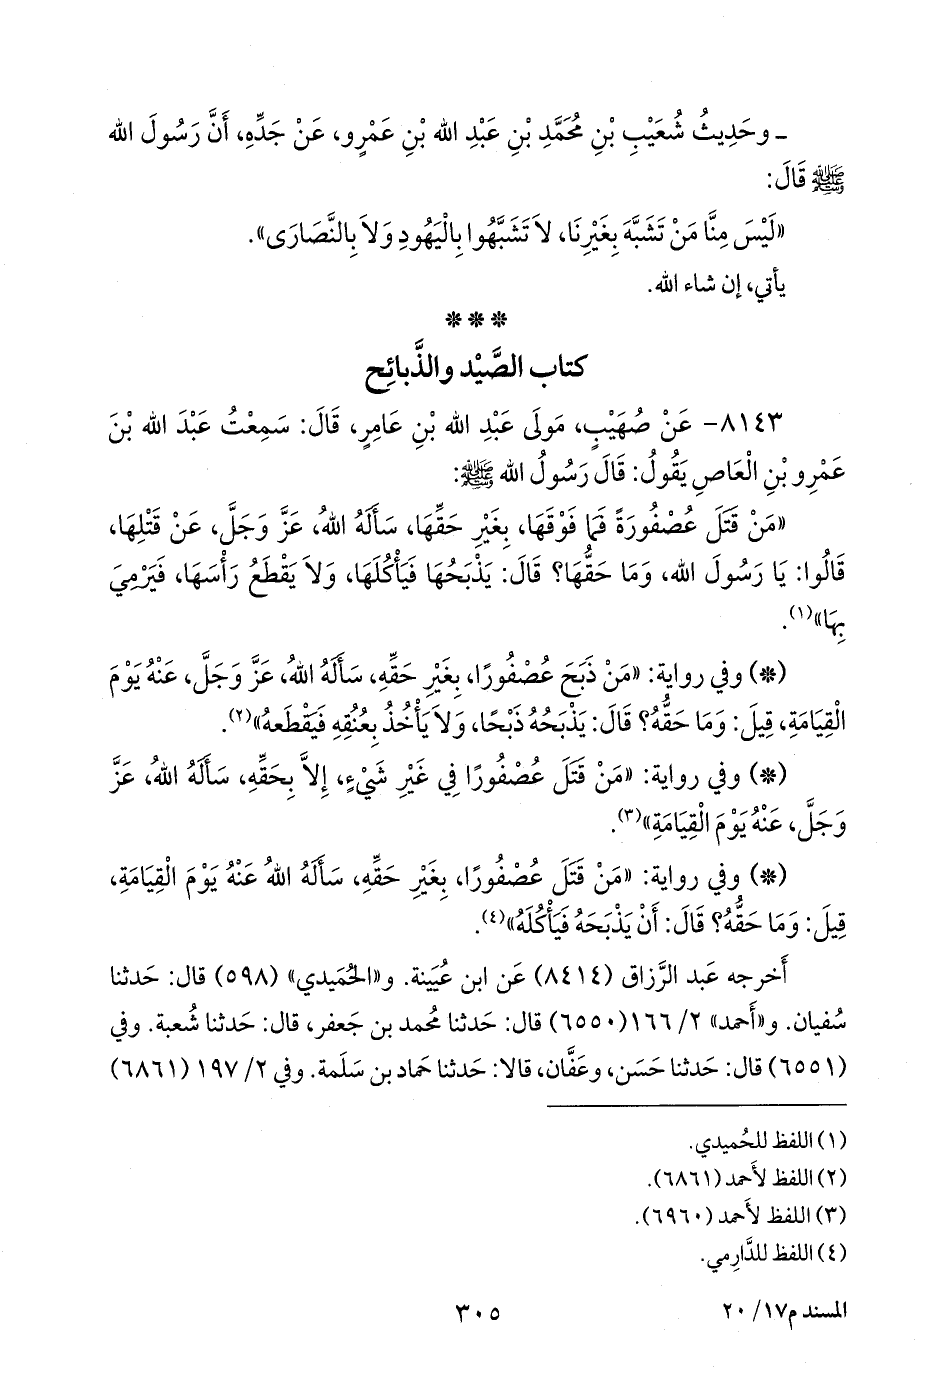 ـ وحَدِيثُ شُعَيْبِ بْنِ مُحَمَّدِ بْنِ عَبْدِ الله بْنِ عَمْرٍو، عَنْ جَدِّهِ، أَنَّ رَسُولَ الله
ﷺ قَالَ:
«لَيْسَ مِنَّا مَنْ تَشَبَّهَ بِغَيْرِنَا، لاَ تَشَبَّهُوا بِالْيَهُودِ وَلاَ بِالنَّصَارَى».
يأتي، إن شاء الله.
* * *
كتاب الصَّيْد والذَّبائِح
٨١٤٣- عَنْ صُهَيْبٍ، مَولَى عَبْدِ الله بْنِ عَامِرٍ، قَالَ: سَمِعْتُ عَبْدَ الله بْنَ
عَمْرِو بْنِ الْعَاصِ يَقُولُ: قَالَ رَسُولُ الله ﷺ:
«مَنْ قَتَلَ عُصْفُورَةً فَمَا فَوْقَهَا، بِغَيْرِ حَقِّهَا، سَأَلَهُ اللهُ، عَزَّ وَجَلَّ، عَنْ قَتْلِهَا،
قَالُوا: يَا رَسُولَ الله، وَمَا حَقُّهَا؟ قَالَ: يَذْبَحُهَا فَيَأْكُلُهَا، وَلاَ يَقْطَعُ رَأْسَهَا، فَيَرْمِيَ
بِهَا»(١).
(*) وفي رواية: «مَنْ ذَبَحَ عُصْفُورًا، بِغَيْرِ حَقِّهِ، سَأَلَهُ اللهُ، عَزَّ وَجَلَّ، عَنْهُ يَوْمَ
الْقِيَامَةِ، قِيلَ: وَمَا حَقُّهُ؟ قَالَ: يَذْبَحُهُ ذَبْحًا، وَلاَ يَأْخُذُ بِعُنُقِهِ فَيَقْطَعهُ»(٢).
(*) وفي رواية: «مَنْ قَتَلَ عُصْفُورًا فِي غَيْرِ شَيْءٍ، إِلاَّ بِحَقِّهِ، سَأَلَهُ اللهُ، عَزَّ
وَجَلَّ، عَنْهُ يَوْمَ الْقِيَامَةِ»(٣).
(*) وفي رواية: «مَنْ قَتَلَ عُصْفُورًا، بِغَيْرِ حَقِّهِ، سَأَلَهُ اللهُ عَنْهُ يَوْمَ الْقِيَامَةِ،
قِيلَ: وَمَا حَقُّهُ؟ قَالَ: أَنْ يَذْبَحَهُ فَيَأْكُلَهُ»(٤).
أَخرجه عَبد الرَّزاق (٨٤١٤) عَن ابن عُيَينة. و«الحُمَيدي» (٥٩٨) قال: حَدثنا
سُفيان. و«أَحمد» ٢/ ١٦٦(٦٥٥٠) قال: حَدثنا مُحمد بن جَعفر، قال: حَدثنا شُعبة. وفي
(٦٥٥١) قال: حَدثنا حَسَن، وعَفَّان، قالا: حَدثنا حَماد بن سَلَمة. وفي ٢/ ١٩٧ (٦٨٦١)
(١) اللفظ للحُميدي.
(٢) اللفظ لأَحمد (٦٨٦١).
(٣) اللفظ لأَحمد (٦٩٦٠).
(٤) اللفظ للدَّارِمي.
المسند م١٧/ ٢٠
٣٠٥